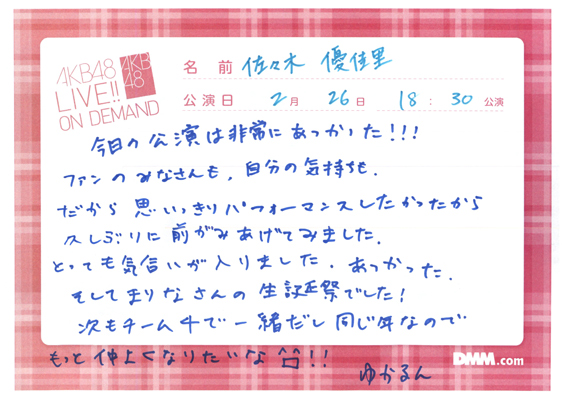 AKB48
LIVE!!
ON DEMAND
AKB
48
名 前 佐々木 優佳里
公演日 2月 26日 18:30公演
今日の公演は非常にあつかった!!!
ファンのみなさんも、自分の気持ちも.
だから思いっきりパフォーマンスしたかったから
久しぶりに前がみあげてみました.
とっても気合いが入りました. あつかった.
そしてまりなさんの生誕祭でした!
次もチーム4で一緒だし同じ年なので
もっと仲よくなりたいな!!
ゆかるん
DMM.com